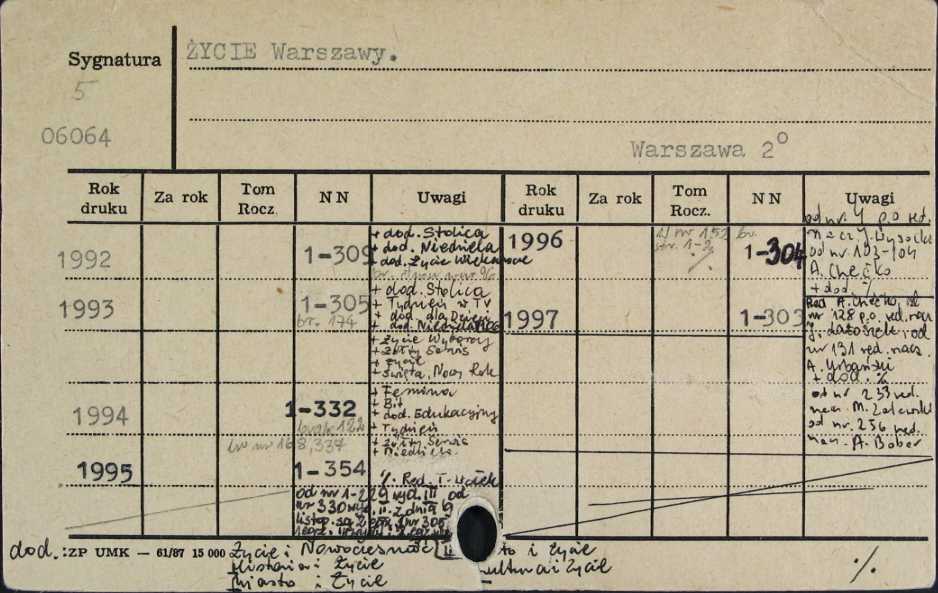 Sygnatura
ŻYCIE Warszawy.
5
06064
Warszawa 2°
Rok druku
Za rok
Tom Rocz.
NN
Uwagi
Rok druku
Za rok
Tom Rocz.
NN
Uwagi
1992
1-309
+ dod. Stolica
+ dod. Niedziela
+ dod. Życie Weekendowe
1993
1-305
br. 174
+ dod. Stolica
+ Tydzień w TV
+ dod. dla Dzieci
+ dod. Niedziela
+ Życie Wyborcy
+ żółty Serwis
+ Życie
+ Święta, Nowy Rok
1994
1-332
brak 122
br nr 168, 337
+ Femina
+ Bit
+ dod. Edukacyjny
+ Tydzień
+ żółty Serwis
+ Niedziela
1995
1-354
%. Red. T.
od nr 1-229 wyd. III od
nr 330 wyd. II. z dnia
listop. są 2 egz. (nr 305
1996
nr 152 br.
str. 1-2
1-304
od nr. 4 p.o red.
nacz. J. Wysocki
od nr 103-104
A. Chećko
+ dod. %
1997
1-303
Red A. Chećko, od
nr 128 p.o. red. nacz
J. od
nr 131 red. nacz.
A. Urbański
+ dod. %
od nr 233 red.
nacz. M. Zalewski
od nr. 256 red.
nacz. A. Bober
dod.: ZP UMK — 61/87 15 000 Życie i Nowoczesność
to i życie
Historia i Życie
ultura i Życie
Miasto i Życie
%